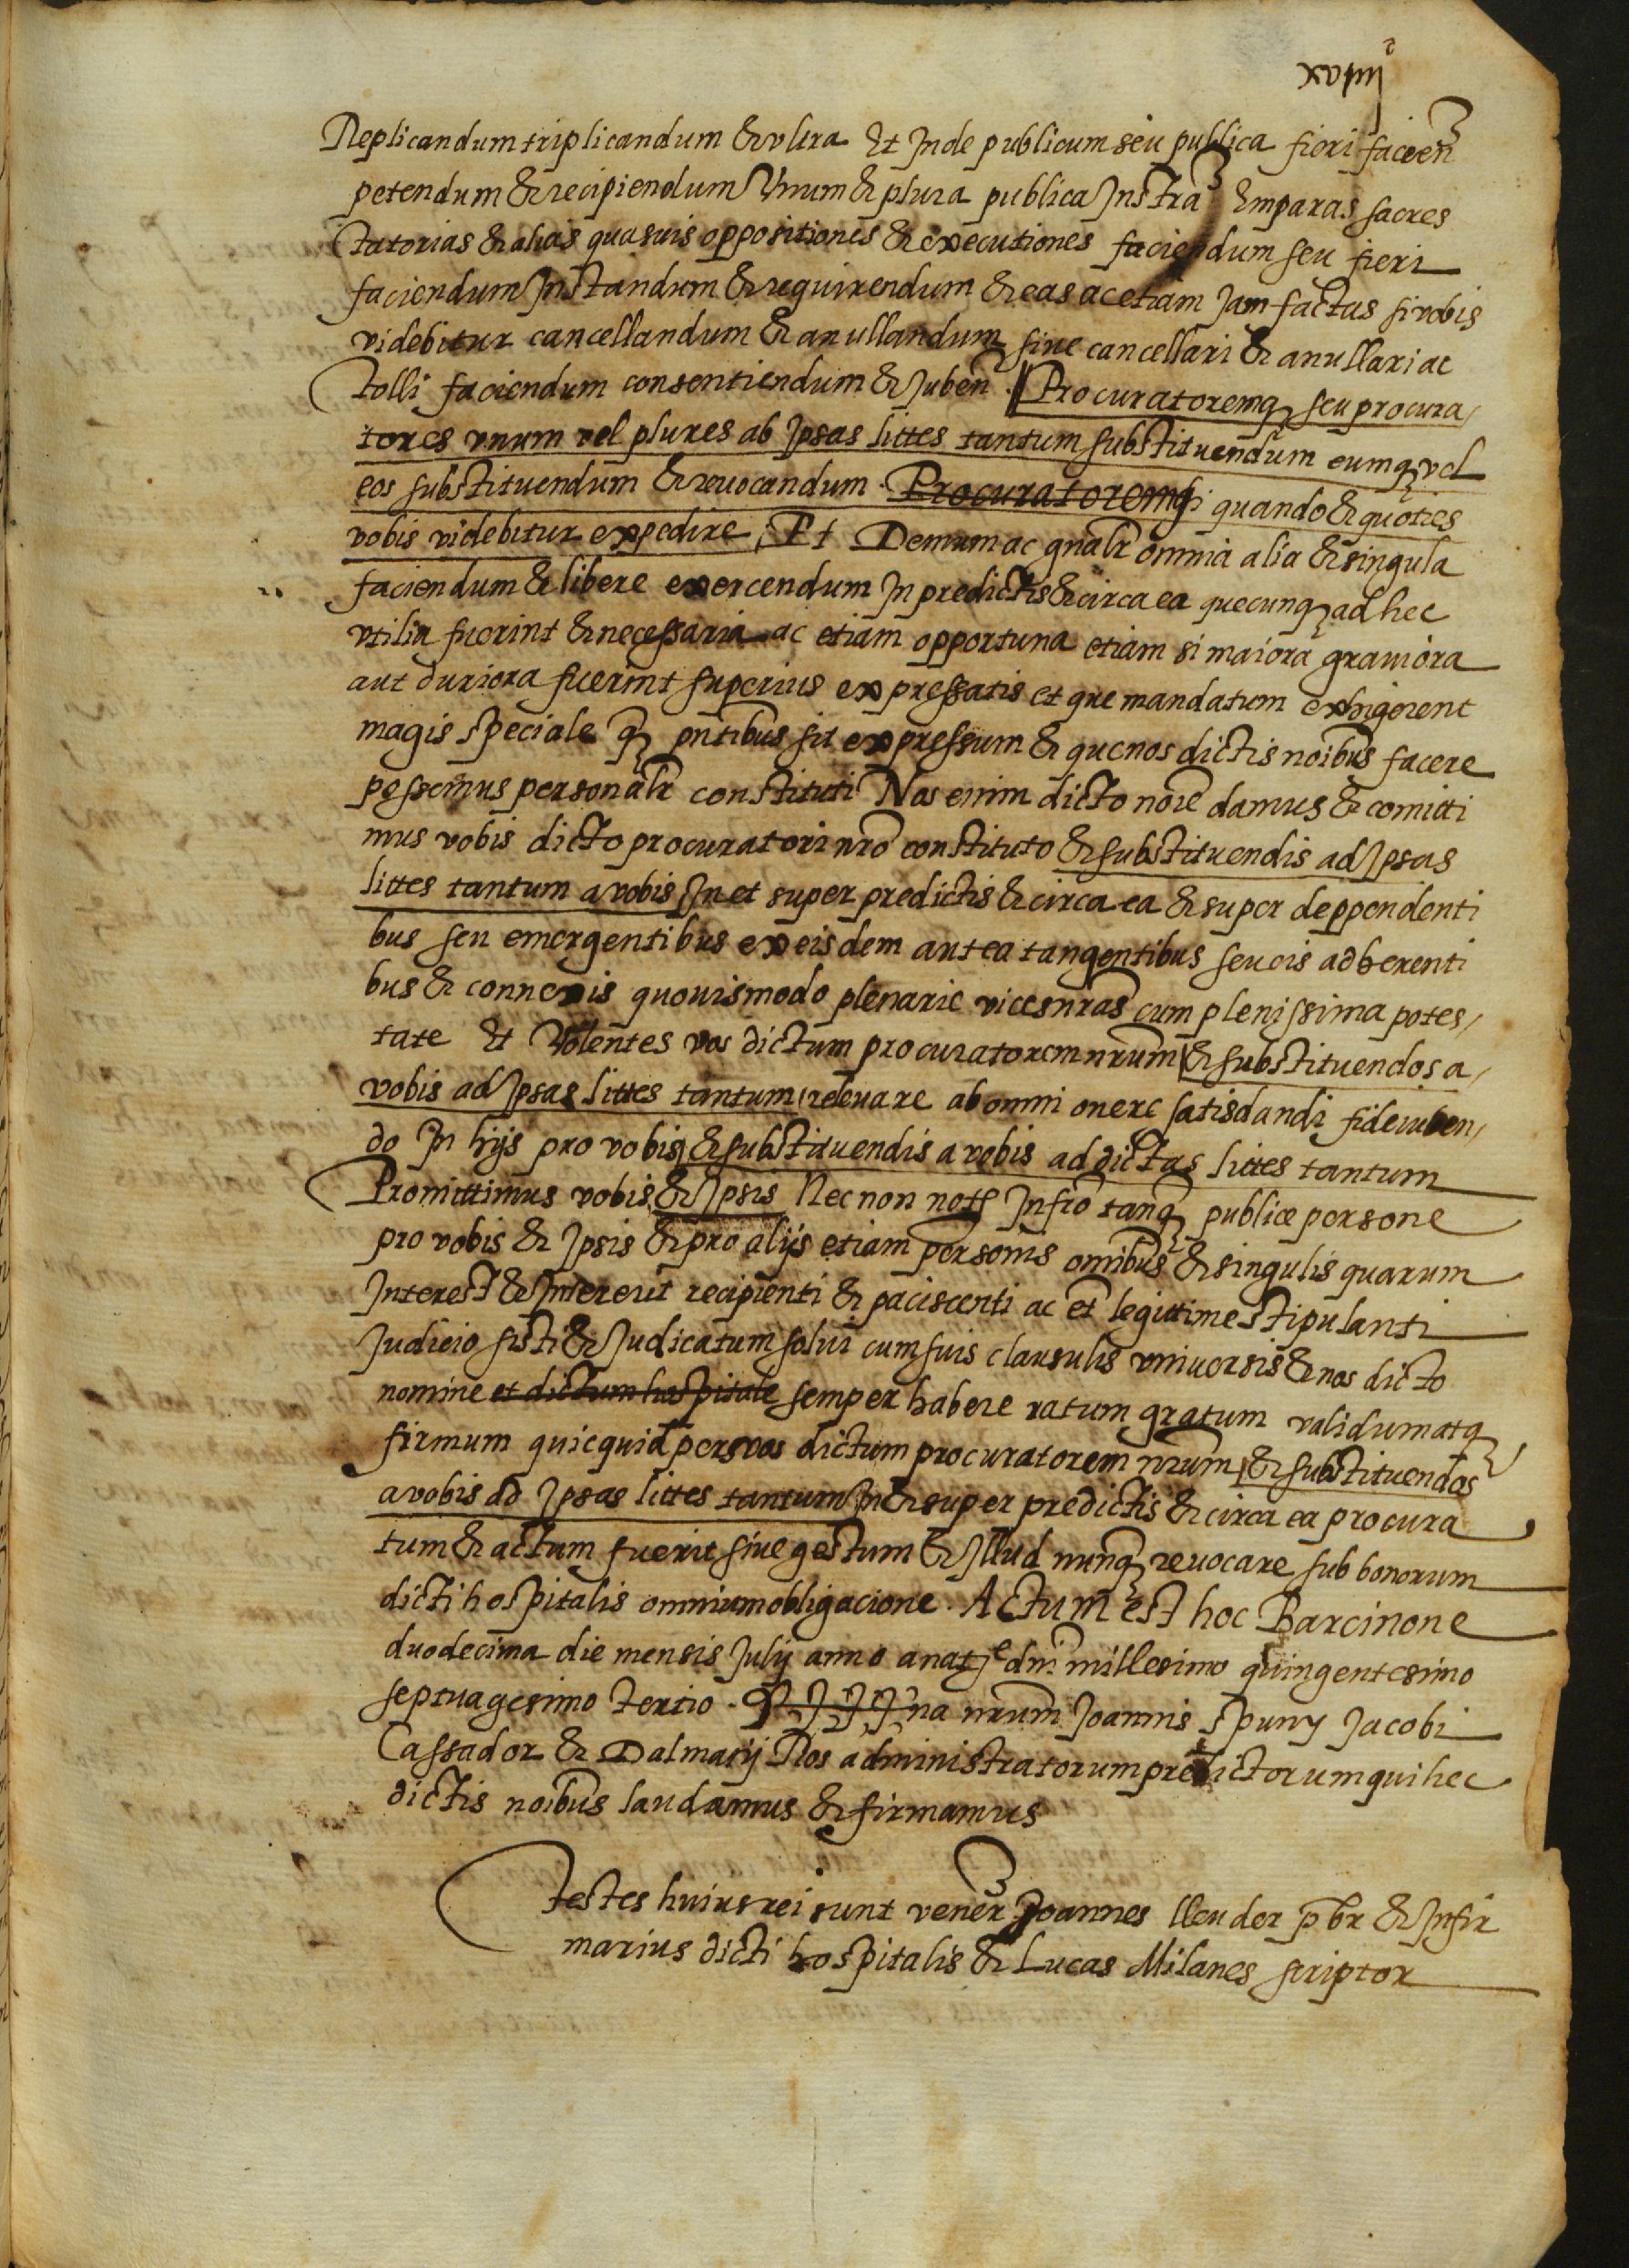 xviiij
Replicandum triplicandum & vltra Et Inde publicum seu publica fieri facien
petendum & recipiendum Vnum & plura publica Instra Emparas sacres
tatorias & alias quasuis oppositiones & execuciones faciendum seu fieri
faciendum Instandum & requirendum & eas ac etiam Jam factas si vobis
videbitur cancellandum & anullandum siue cancellari & anullari ac
tolli faciendum consentiendum & Juben. Procuratoremq seu procura/
tores vnum vel plures ab Ipsas littes tantum substituendum eumq vel
eos substituendum & reuocandum. Procuratoremq quando & quoties
vobis videbitur expedire, Et Demum ac gnalr omnia alia & singula
faciendum & libere exercendum In predictis & circa ea quecunq ad hec
vtilia fuerint & necessaria ac etiam opportuna etiam si maiora grauiora
aut duriora fuerint superius expressatis et que mandatum exhigerent
magis speciale q pntibus sit expressum & que nos dictis noibus facere
possemus personalr constituti Nos enim dicto noie damus & comitti
mus vobis dicto procuratori nro constituto & substituendis ad Ipsas
littes tantum a vobis In et super predictis & circa ea & super deppendenti
bus seu emergentibus ex eisdem aut ea tangentibus seu eis adherenti
bus & connexis quouismodo plenarie vices nras cum plenissima potes/
tate Et Volentes vos dictum procuratorem nrum & substituendos a/
vobis ad Ipsas littes tantum releuare ab omni onere satisdandi fideiuben/
do In hijs pro vobis & substituendis a vobis ad dictas littes tantum
Promittimus vobis & Ipsis Nec non noto Infro tanq publice persone
pro vobis & Ipsis & pro alijs etiam personis omibus & singulis quarum
Interest & Intererit recipienti & paciscenti ac et legittime stipulanti
Judicio sisti & Judicatum solui cum suis clausulis vniuersis & nos dicto
nomine et dictum hospitale semper habere ratum gratum validum atq
firmum quicquid per vos dictum procuratorem nrum & substituendos
a vobis ad Ipsas littes tantum In & super predictis & circa ea procura
tum & actum fuerit siue gestum & Illud nunq reuocare sub bonorum
dicti hospitalis omnium obligacione. Actum est hoc Barcinone
duodecima die mensis Julij anno a nate dni millesimo quingentesimo
septuagesimo tertio. na nrum Joannis spuny Jacobi
Cassador & Dalmatij Ros administratorum predictorum qui hec
dictis noibus laudamus & firmamus
Testes huius rei sunt vener Joannes lleuder pbr & Infir
marius dicti hospitalis & Lucas Milanes scriptor